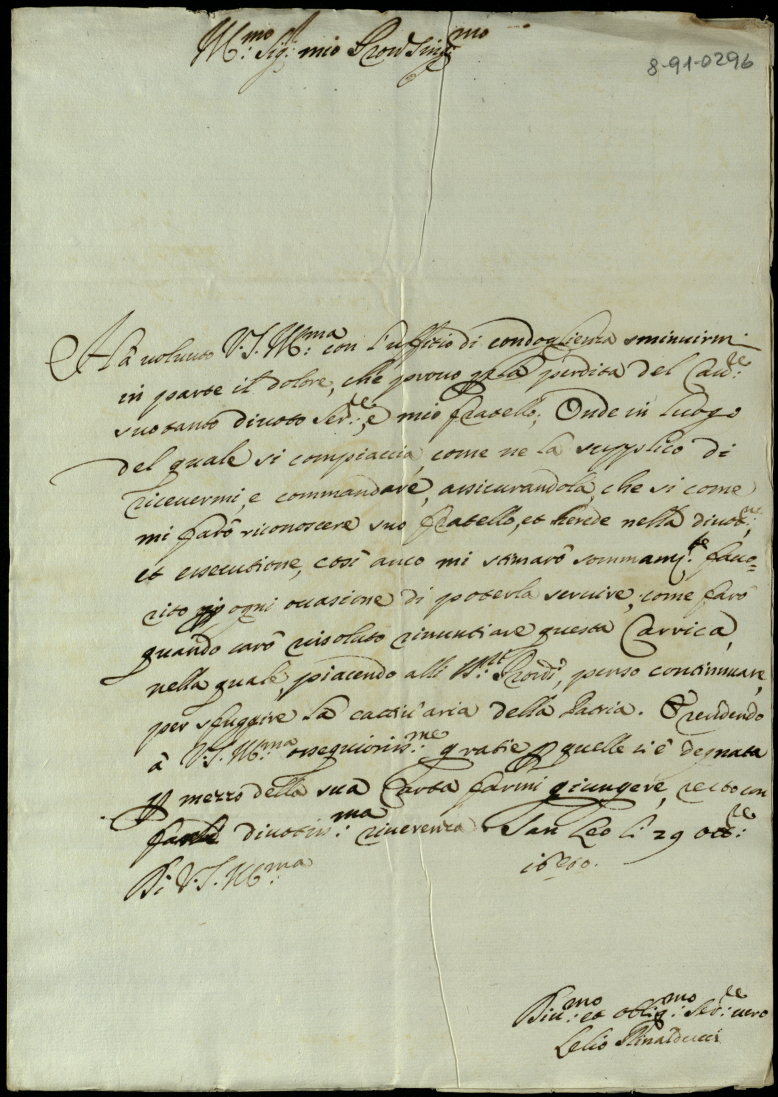 Ill:mo Sig:r mio Pron Sing:mo
8-91-0296
Hà voluto V.S. Ill:ma con l'uffizio di condoglienza sminuirmi
in parte il dolore, che provo p la perdita del Cau:re
suo tanto divoto Ser:re, e mio fratello; Onde in luogo
del quale si compiaccia, come ne la supplico di
ricevermi, e commandare, assicurandola, che si come
mi farò riconoscere suo fratello, et herede nella divot:ne
et essecutione, così anco mi stimarò sommam:te favo=
rito in ogni occasione di poterla servire, come farò
quando sarò risoluto rinuntiare questa Carrica,
nella quale, piacendo alli Ill:mi Proni, penso continuare,
per sfuggire la cattiv'aria della Patria. E rendendo
à V.S. Ill:ma ossequiosiss:me gratie p quelle si è degnata
p mezzo della sua Carta farmi giungere, resto con
divotiss:ma riverenza. San Leo li 29 ott:re
Di V.S. Ill:ma
Div:mo et oblig:mo Ser:re vero
Lelio Rinalducci